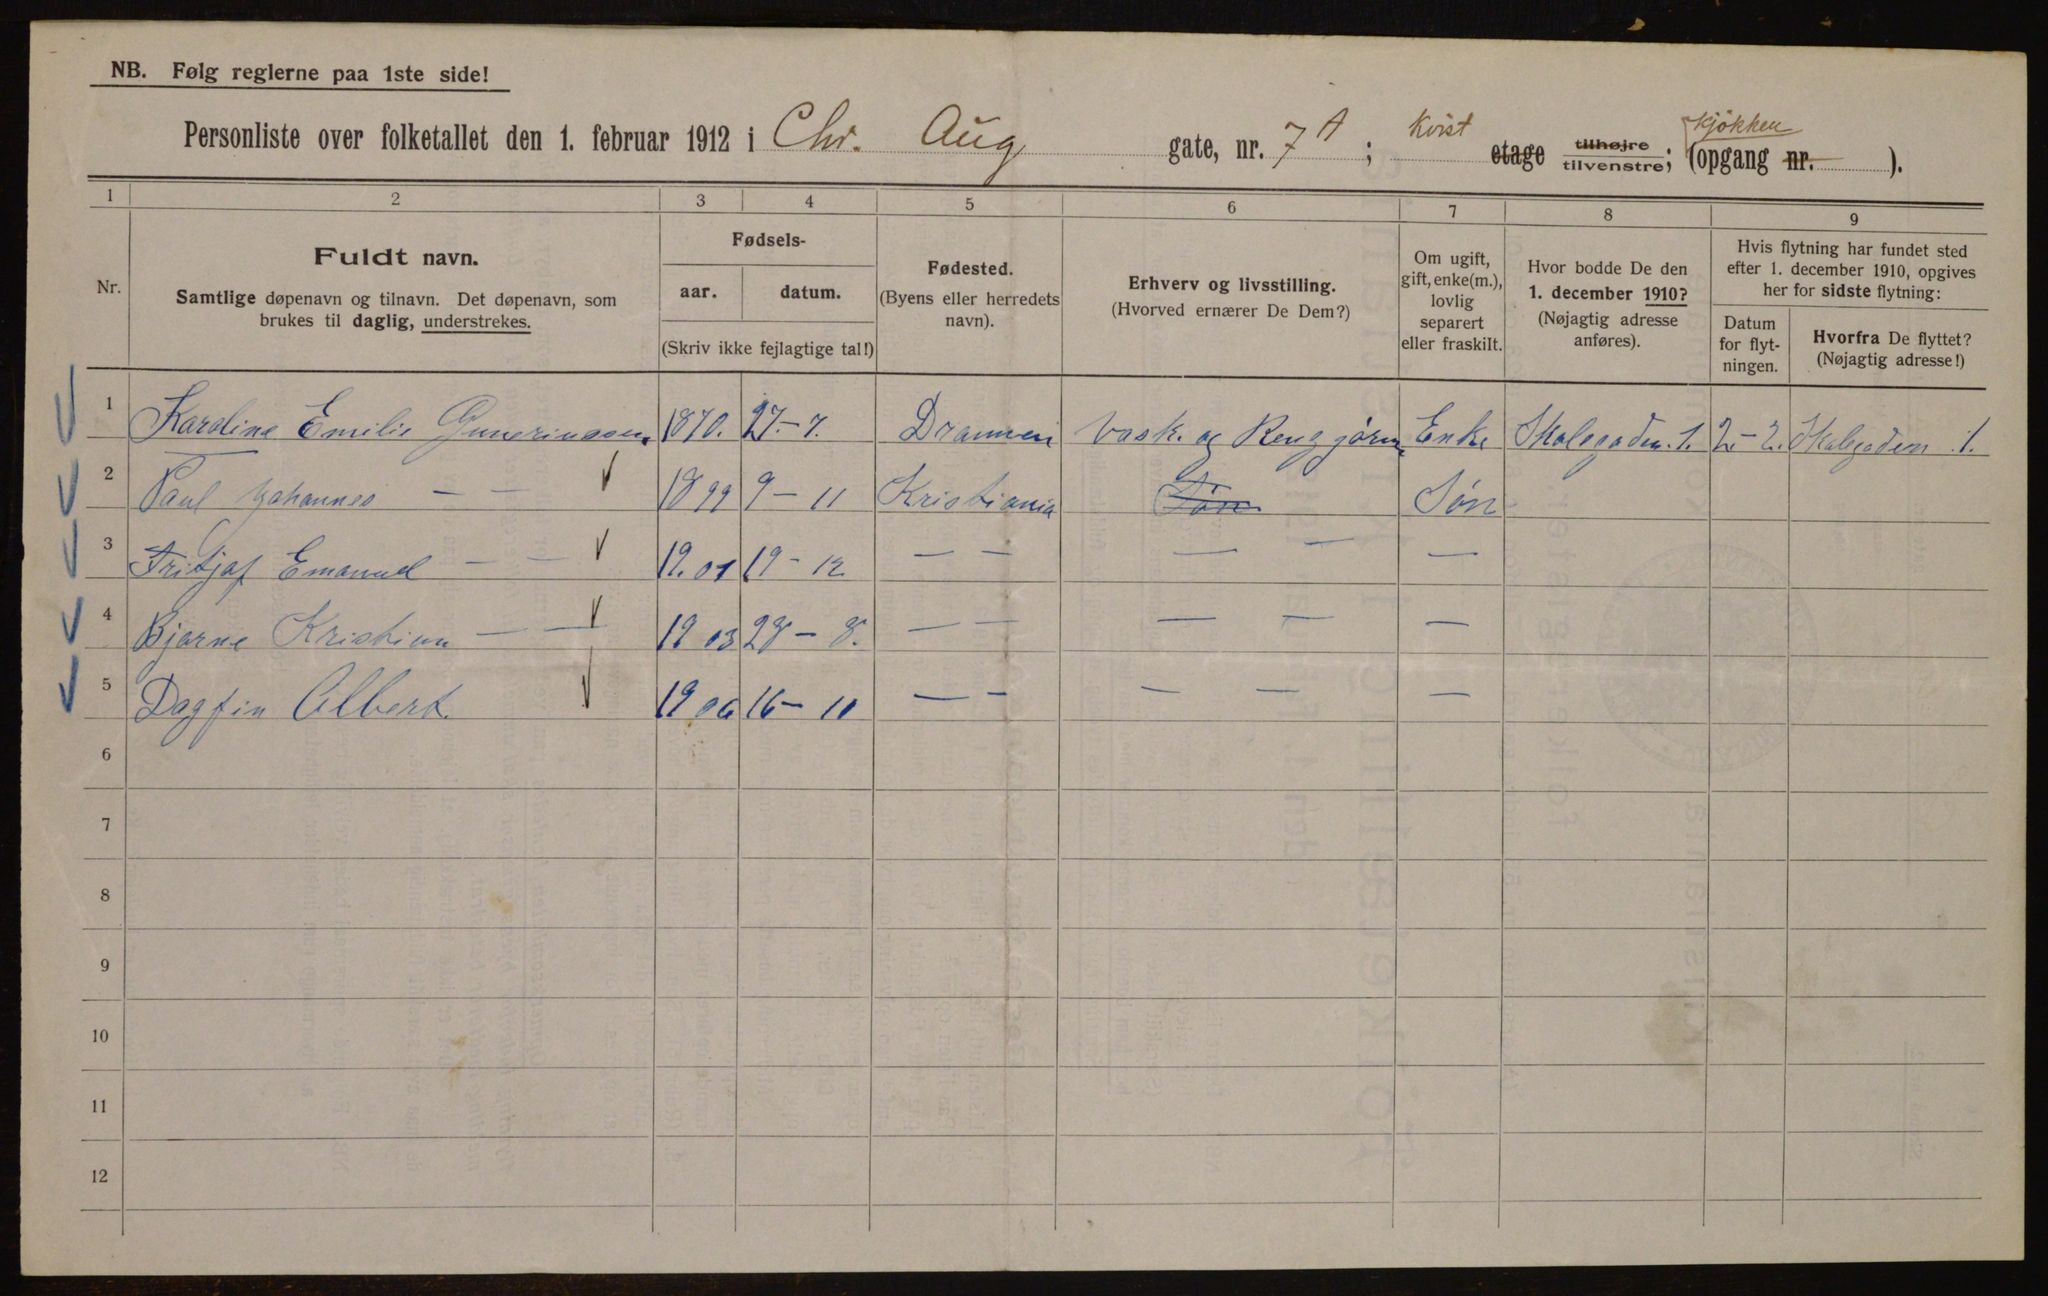 NB. Følg reglerne paa 1ste side!
Personliste over folketallet den 1. februar 1912 i Chr. Aug gate, nr. 7 A ; Kvist etage tilhøjre tilvenstre; (opgang nr. ). Kjøkken
1 2 3 4 5 6 7 8 9
Nr.
Fuldt navn.
Samtlige døpenavn og tilnavn. Det døpenavn, som
brukes til daglig, understrekes.
Fødsels-
aar. datum.
(Skriv ikke fejlagtige tal!)
Fødested.
(Byens eller herredets
navn).
Erhverv og livsstilling.
(Hvorved ernærer De Dem?)
Om ugift,
gift, enke(m.),
lovlig
separert
eller fraskilt.
Hvor bodde De den
1. december 1910?
(Nøjagtig adresse
anføres).
Hvis flytning har fundet sted
efter 1. december 1910, opgives
her for sidste flytning:
Datum
for flyt-
ningen.
Hvorfra De flyttet?
(Nøjagtig adresse!)
1 Karoline Emilie 1870. 27.-7. Drammen Vask. og Rengjørin Enke 1. 2.-2. 1.
2 Paul Johannes — — 1899 9 – 11 Kristiania Søn Søn
3 Fritjof Emanuel — — 19.01 19 - 12. — — — — —
4 Bjarne Kristian — — 1903 28 – 8. — — — — —
5 Dagfin Albert. 1906 16 – 10 — — — — —
6
7
8
9
10
11
12